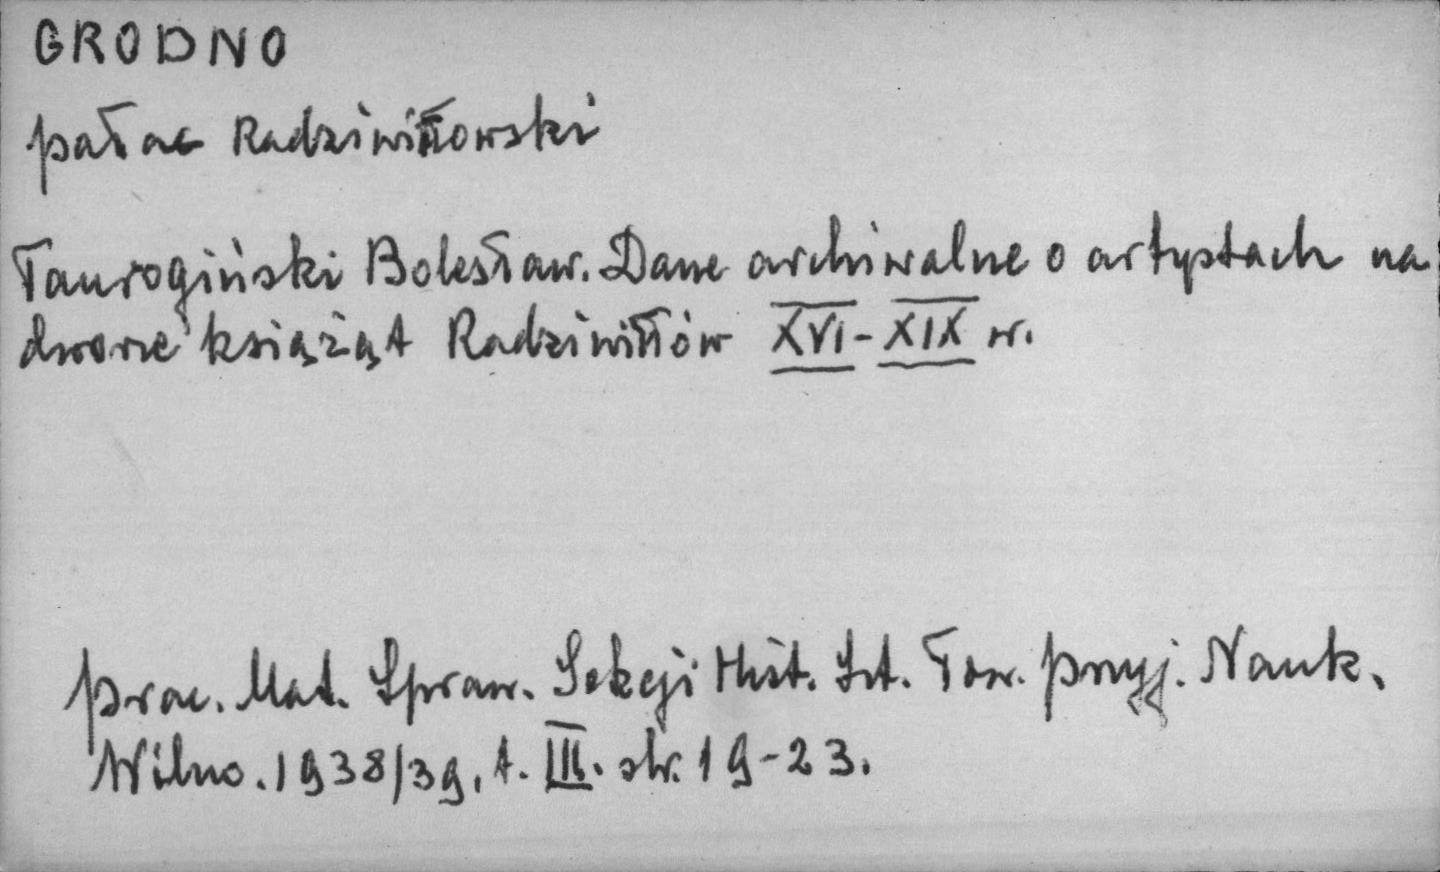 GRODNO
pałac Radziwiłłowski
Taurogiński Bolesław. Dane archiwalne o artystach na
dworze książąt Radziwiłłów XVI-XIX w.
Prac. Mat. Spraw. Sekcji Hist. Szt. Tow. Przyj. Nauk.
Wilno. 1938/39, t. III. str. 19-23.